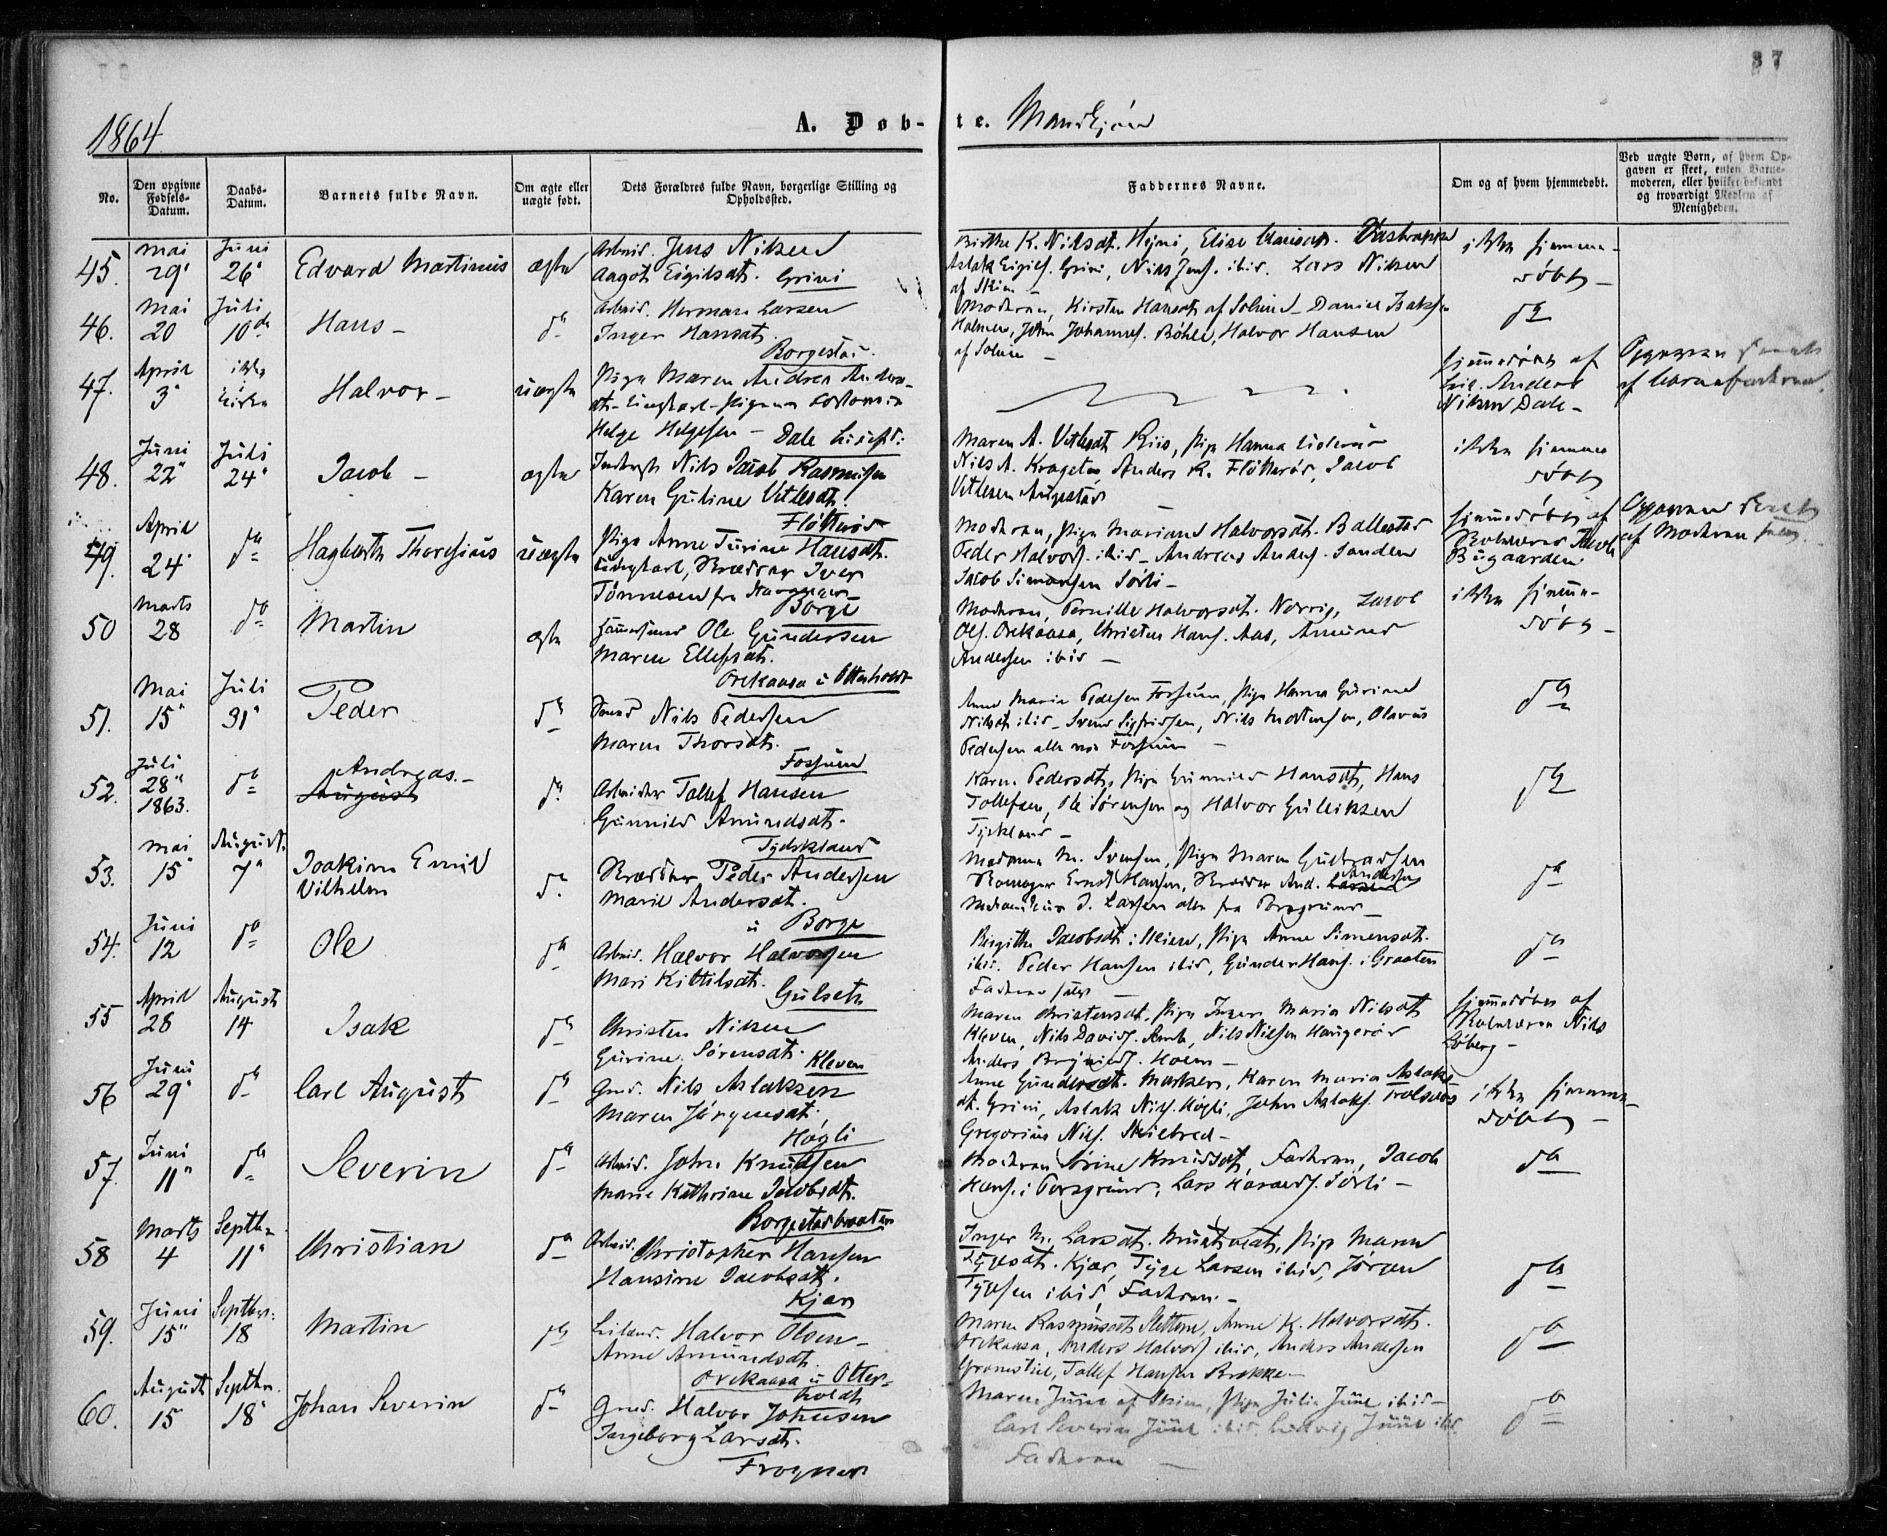 37
1864
A. Døb-te. Mandkjøn
No.
Den opgivne Fødsels-Datum.
Daabs-Datum.
Barnets fulde Navn.
Om ægte eller uægte født.
Dets Forældres fulde Navn, borgerlige Stilling og Opholdssted.
Faddernes Navne.
Om og af hvem hjemmedøbt.
Ved uægte Børn, af hvem Opgaven er skeet, enten Barnemoderen, eller hvilket bekjendt og troværdigt Medlem af Menigheden.
45. Mai 29 Juni 26 Edvard Martinus ægte
Arbeid. Jens Nilsen
Aagot Eigilsdt. Grini
Birthe K. Nilsdt. Hejni, Elise Clausdt.
Aslak Eigils. Grini, Nils Jens. ibid. Lars Nilsen
af Skien
ikke hjemme-
døbt
46. Mai 20 Juli 10de Hans do
Arbeid. Herman Larsen
Inger Hansdt.
Borgestad.
Moderen, Kirsten Hansdt af Solum Daniel Isaks.
Holmen, John Johannes. Bøhle, Halvor Hansen
af Solum
do
47. April 3 ikke kirke Halvor uægte
Pige Maren Andrea Anders-
dt. Ungkarl
Helge Helgesen - Dale
hjemmedøbt af
Anders
Nilsen Dale
Opgaven skeet
af Barnefaderen
48. Juni 22 Juli 24 Jacob ægte
Nils Jacob Rasmusen
Karen Guline Vetlesdt.
Fløtterød
Maren A. Vetlesdt Riis, Pige Hanna
Nils A. Kragetøs, Anders R. Fløtterød, Jacob
Vetlesen Augestad
ikke hjemme
døbt
49. April 24 do Hagbarth Thorsius uægte
Pige Anne Turine Hansdt.
Ungkarl, Skrædder Iver
Tønnesen fra
Borge
Moderen, Pige Mariane Halvorsdt. Ballestad
Peder Halvors. ibid - Andreas Anders. Sanden
Jacob Simonsen Sørli
hjemmedøbt af
Skolelærer Jacob
Bugaarden
Opgaven skeet
af Moderen selv.
50 Marts 28 do Martin ægte
Ole Gundersen
Maren Ellefsdt.
Orekaasa u Otterholdt
Moderen, Pernille Halvorsdt. Nørrig, Jacob
Ols. Orekaasa, Christen Hans. Aas, Amund
Andersen ibid
ikke hjemme-
døbt
51. Mai 15 Juli 31 Peder do
Nils Pedersen
Maren Thorsdt.
Fossum
Anne Maria Pedersen Fossum, Pige Hanna Gurine
Nilsdt ibid - Svend Sigfridsen, Nils Mortensen, Olavus
Pedersen alle ved Fossum
do
52. Juli 28 1863. do Andreas. August do
Arbeider Tollef Hansen
Gunnild Amundsdt.
Tydskland
Karen Pedersdt, Pige Gunnild Hansdt, Hans
Tollefsen, Ole Sørensen og Halvor Gulliksen
Tyskland
do
53. Mai 15 August 7 Joakim Emil
Vilhelm do
Skrædder Peder Andersen
Marie Andersdt.
u Borge
Madame M. Svensen, Pige Maren Gulbrandsen
Skomager Ernst Hansen, Skrædder And. Larsen Andersen
J. Larsen alle fra Porsgrund
do
54. Juni 12 do Ole do
Arbeid. Halvor Halvorsen
Mari Kittilsdt.
Gulseth
Birgitte Jacobsdt i Skien, Pige Anne Simensdt.
ibid. Peder Hansen ibid, Gunder Hans. i Graaten
Faderen selv
do
55 April 28 August 14 Isak do
Christen Nilsen
Gurine Sørensdt.
Kleven
Maren Christensdt, Pige Inger Maria Nilsdt
Kleven, Nils Davids. , Nils Nilsen Haugerød
Anders Brynilds. Moen
hjemmedøbt af
Skolelærer Nils
Løberg
56 Juni 29 do Carl August do
Gmd. Nils Aslaksen
Maren Jørgensdt.
Høgli
Anne Gundersdt. Marken, Karen Maria Aslaks-
dt. Grini, Aslak Nils. Høgli, John Aslaks.
Gregorius Nils. Skilbred
ikke hjemme-
døbt
57. Juni 11 do Severin do
Arbeid. John Knudsen
Marie Kathrine Jacobsdt.
Borgestadbraaten
Moderen Sørine Knudsdt, Faderen, Jacob
Hans. i Porsgrund, Lars Sørli
do
58 Marts 4 Septbr. 11 Christian do
Arbeid. Christopher Hansen
Hansine Jacobsdt.
Kjær
Inger M. Larsdt. , Pige Maren
Tygesdt. Kjær, Tyge Larsen ibid, Jørgen
Tygesen ibid, Faderen
do
59. Juni 15 Septbr. 18 Martin do
Leilænd. Halvor Olsen
Anne Amundsdt.
Orekaasa u Otter-
holdt
Maren Rasmusdt Sletten, Anne K. Halvorsdt.
Orekaasa, Anders Halvors. ibid, Anders Andersen
Gromstul, Tollef Hansen Brekken
do
60. August 15 Septbr. 18 Johan Severin do
Gmd. Halvor Johnsen
Ingeborg Larsdt.
Frogner
Maren Juul af Skien, Pige Julia Juul ibid
Carl Severin Juul ibid. Ludvig Juul ibid.
Faderen
do